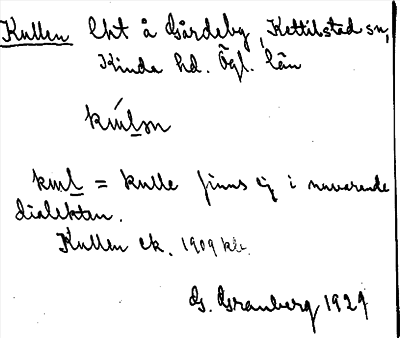 Kullen lht å Gårdeby, Kettilstad sn,
Kinda hd. Ögl. län
= kulle finns ej i nuvarande
dialekten.
Kullen ek. 1909 kbr.
G. Granberg 1929